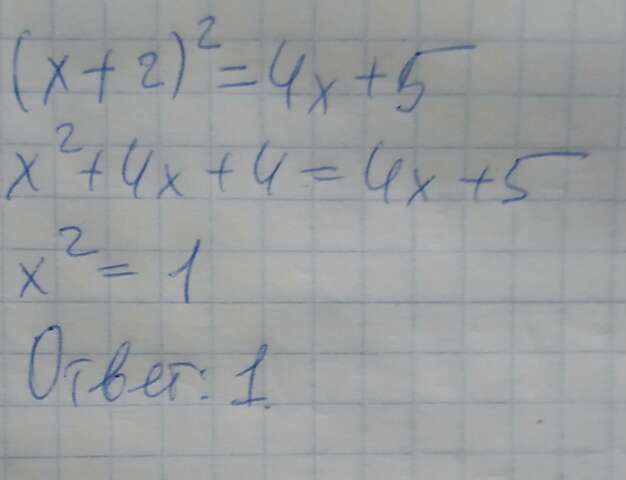 (x+2)² = 4x+5
x²+4x+4 = 4x+5
x² = 1
Ответ: 1.